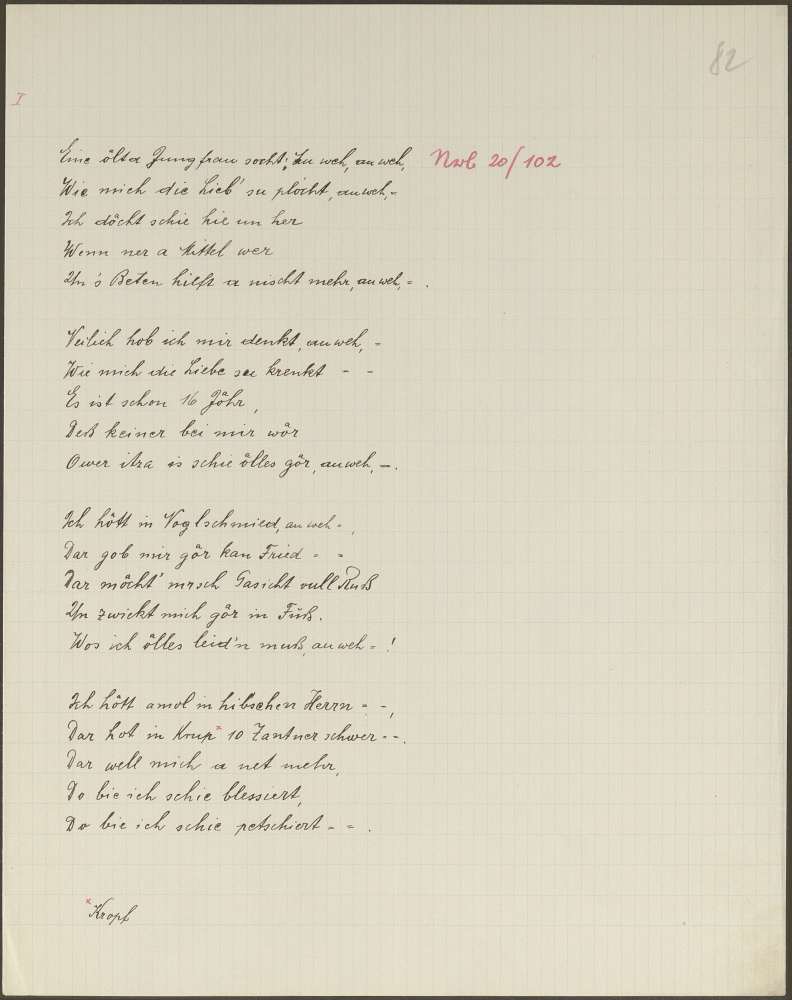 82
I
Eine ölta Jungfrau socht: Au weh, au weh, Nwb 20/102
Wie mich die Lieb' su plöcht, au weh, -
Ich döcht schie hie un her
Wenn ner a Mittel wer
Un's Beten hilft a nischt mehr, au weh, = .
Neilich hob ich mir denkt, au weh, =
Wie mich die Liebe su krenkt - -
Es ist schon 16 Jöhr,
Deß keiner bei mir wör
Ower itza is schie ölles gör, au weh, -.
Ich hött in Noglschmied, au weh - ,
Dar gob mir gör kan Fried = =
Dar möcht' mrsch Gasicht vull Ruß
Un zwickt mich gör in Füß.
Wos ich ölles leid'n muß, au weh = !
Ich hött amol in hibschen Herrn = -,
Dar hot in Krup x 10 Zantner schwer - -.
Dar well mich a net mehr,
Do bie ich schie blessiert,
Do bie ich schie petschiert - = .
x Kropf